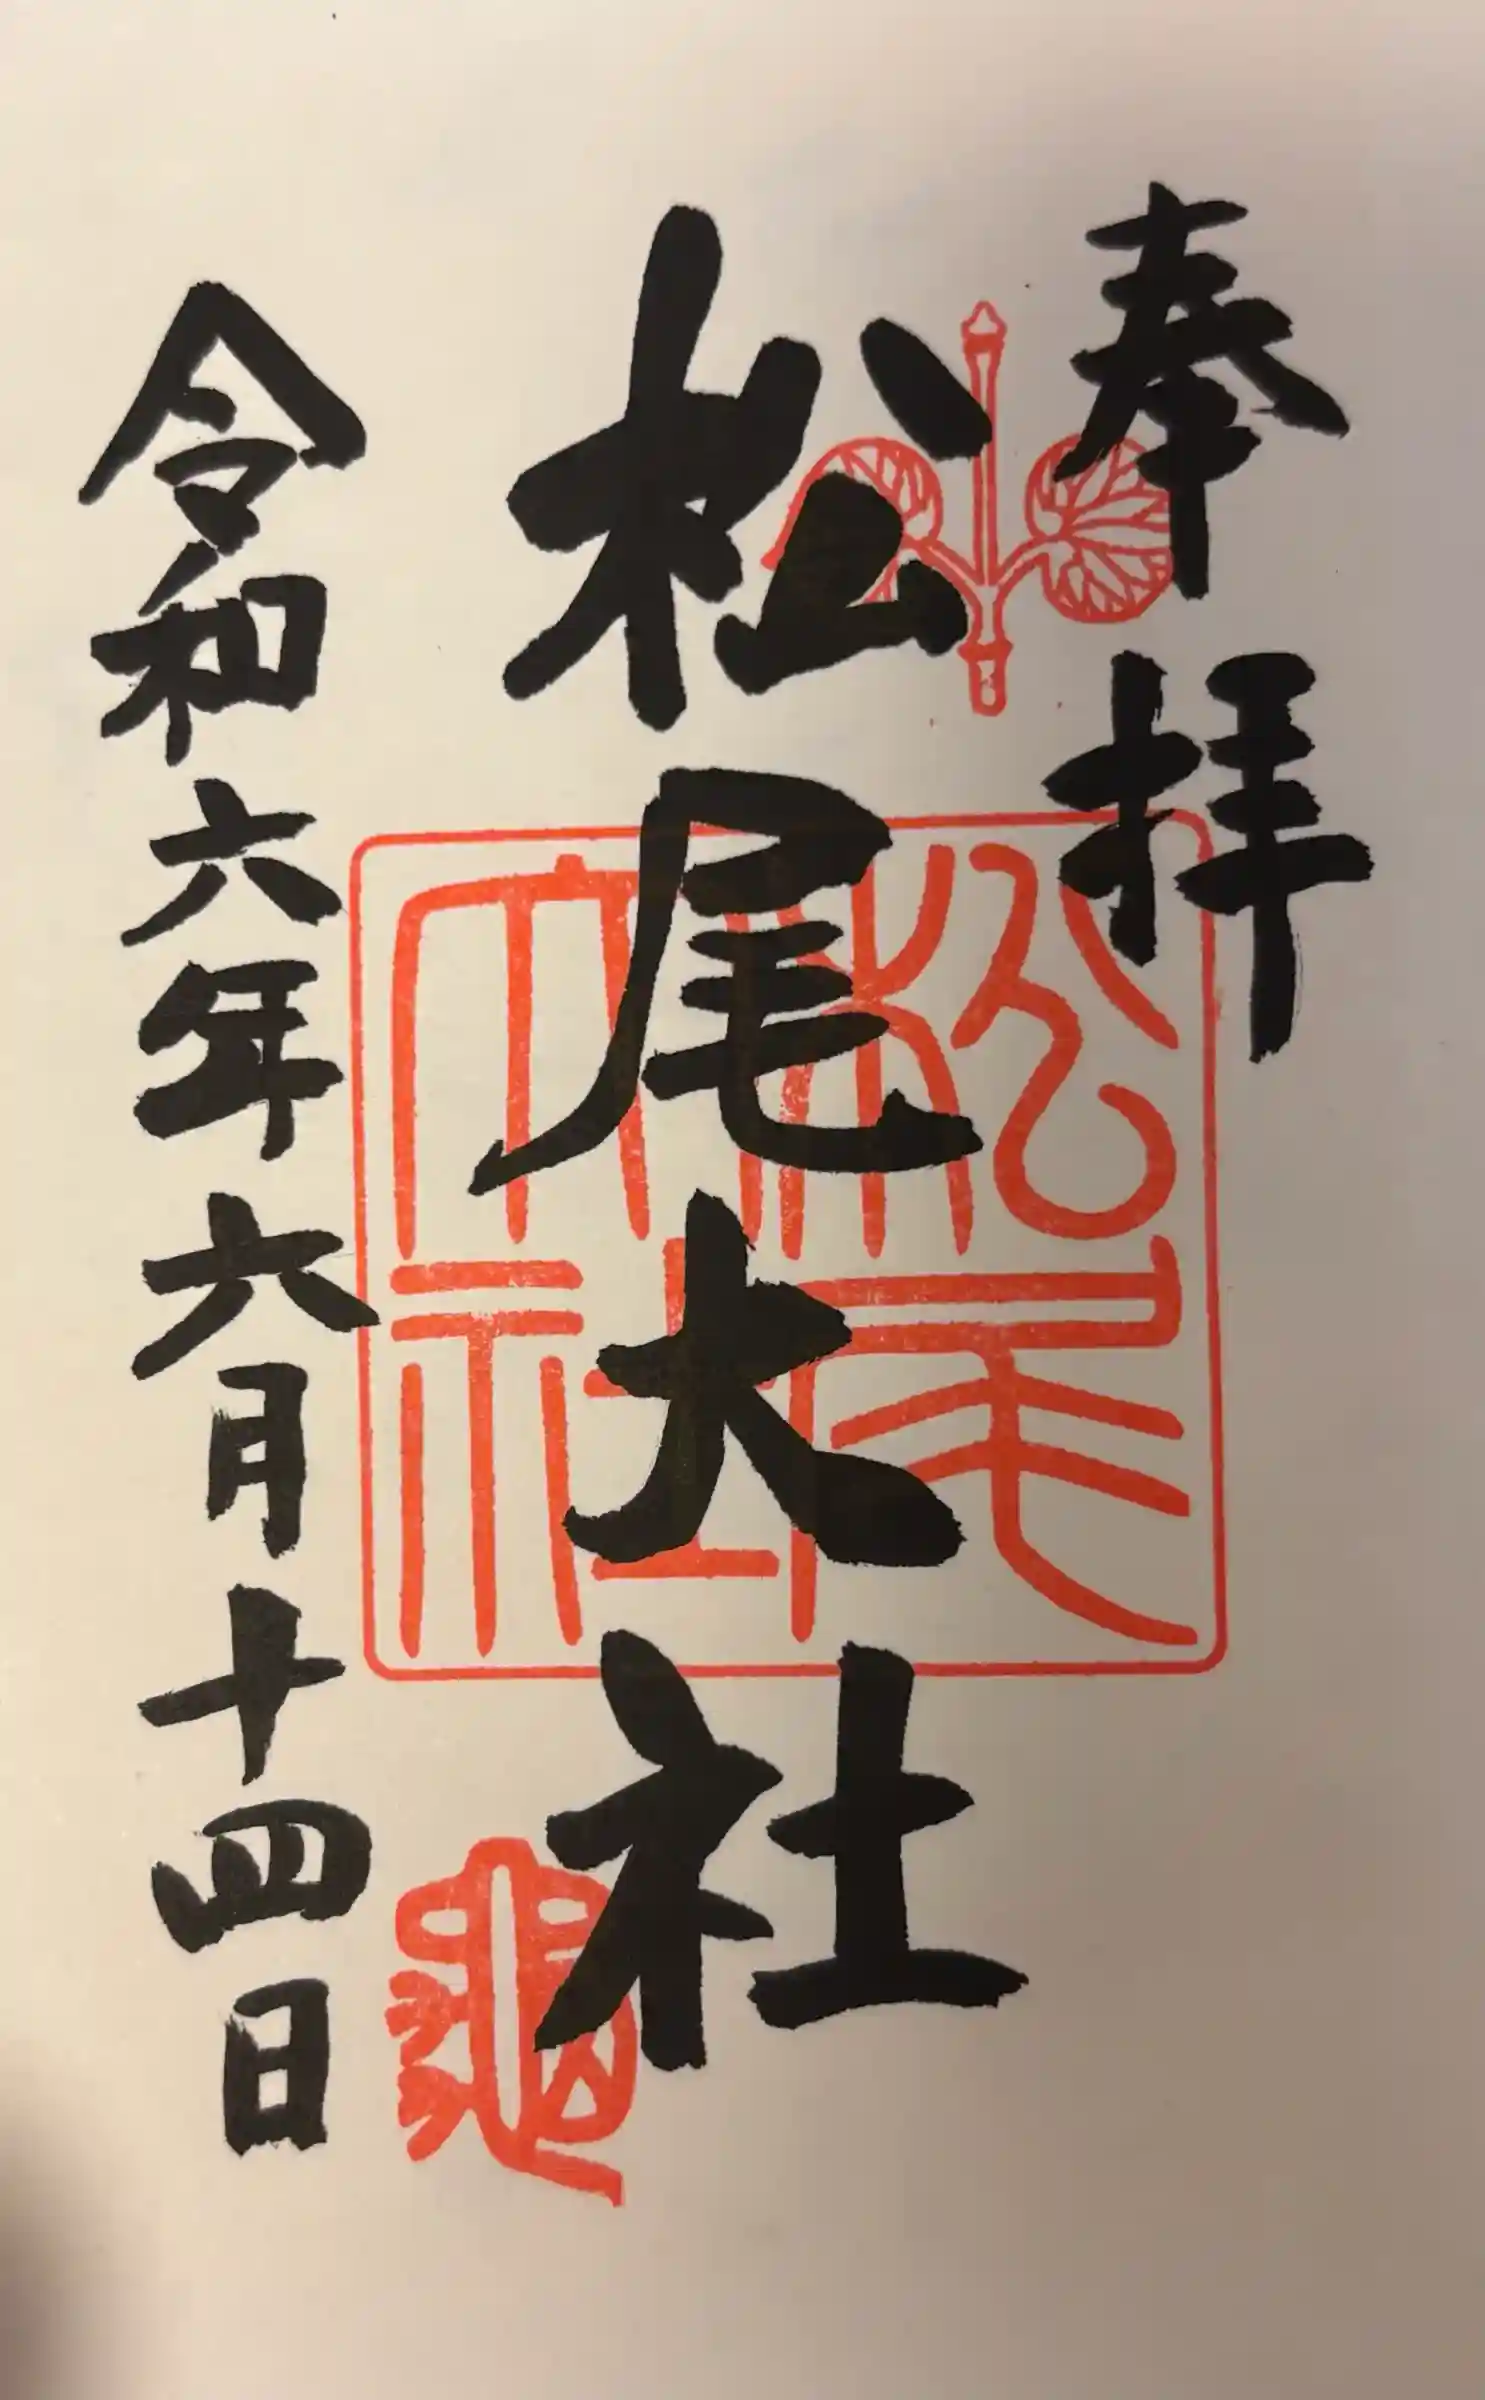 奉拝
松尾大社
松尾大社
龜
令和六年六月十四日